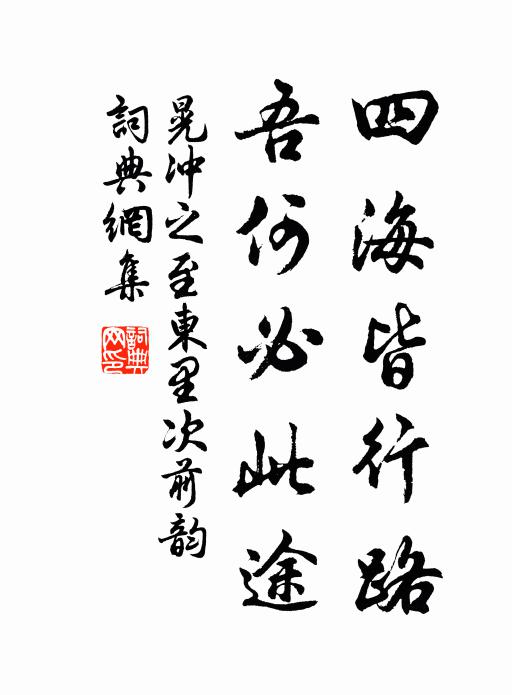 四海皆行路
吾何必此途
晁沖之至東里次前韵
詞典網集
詞典
网印